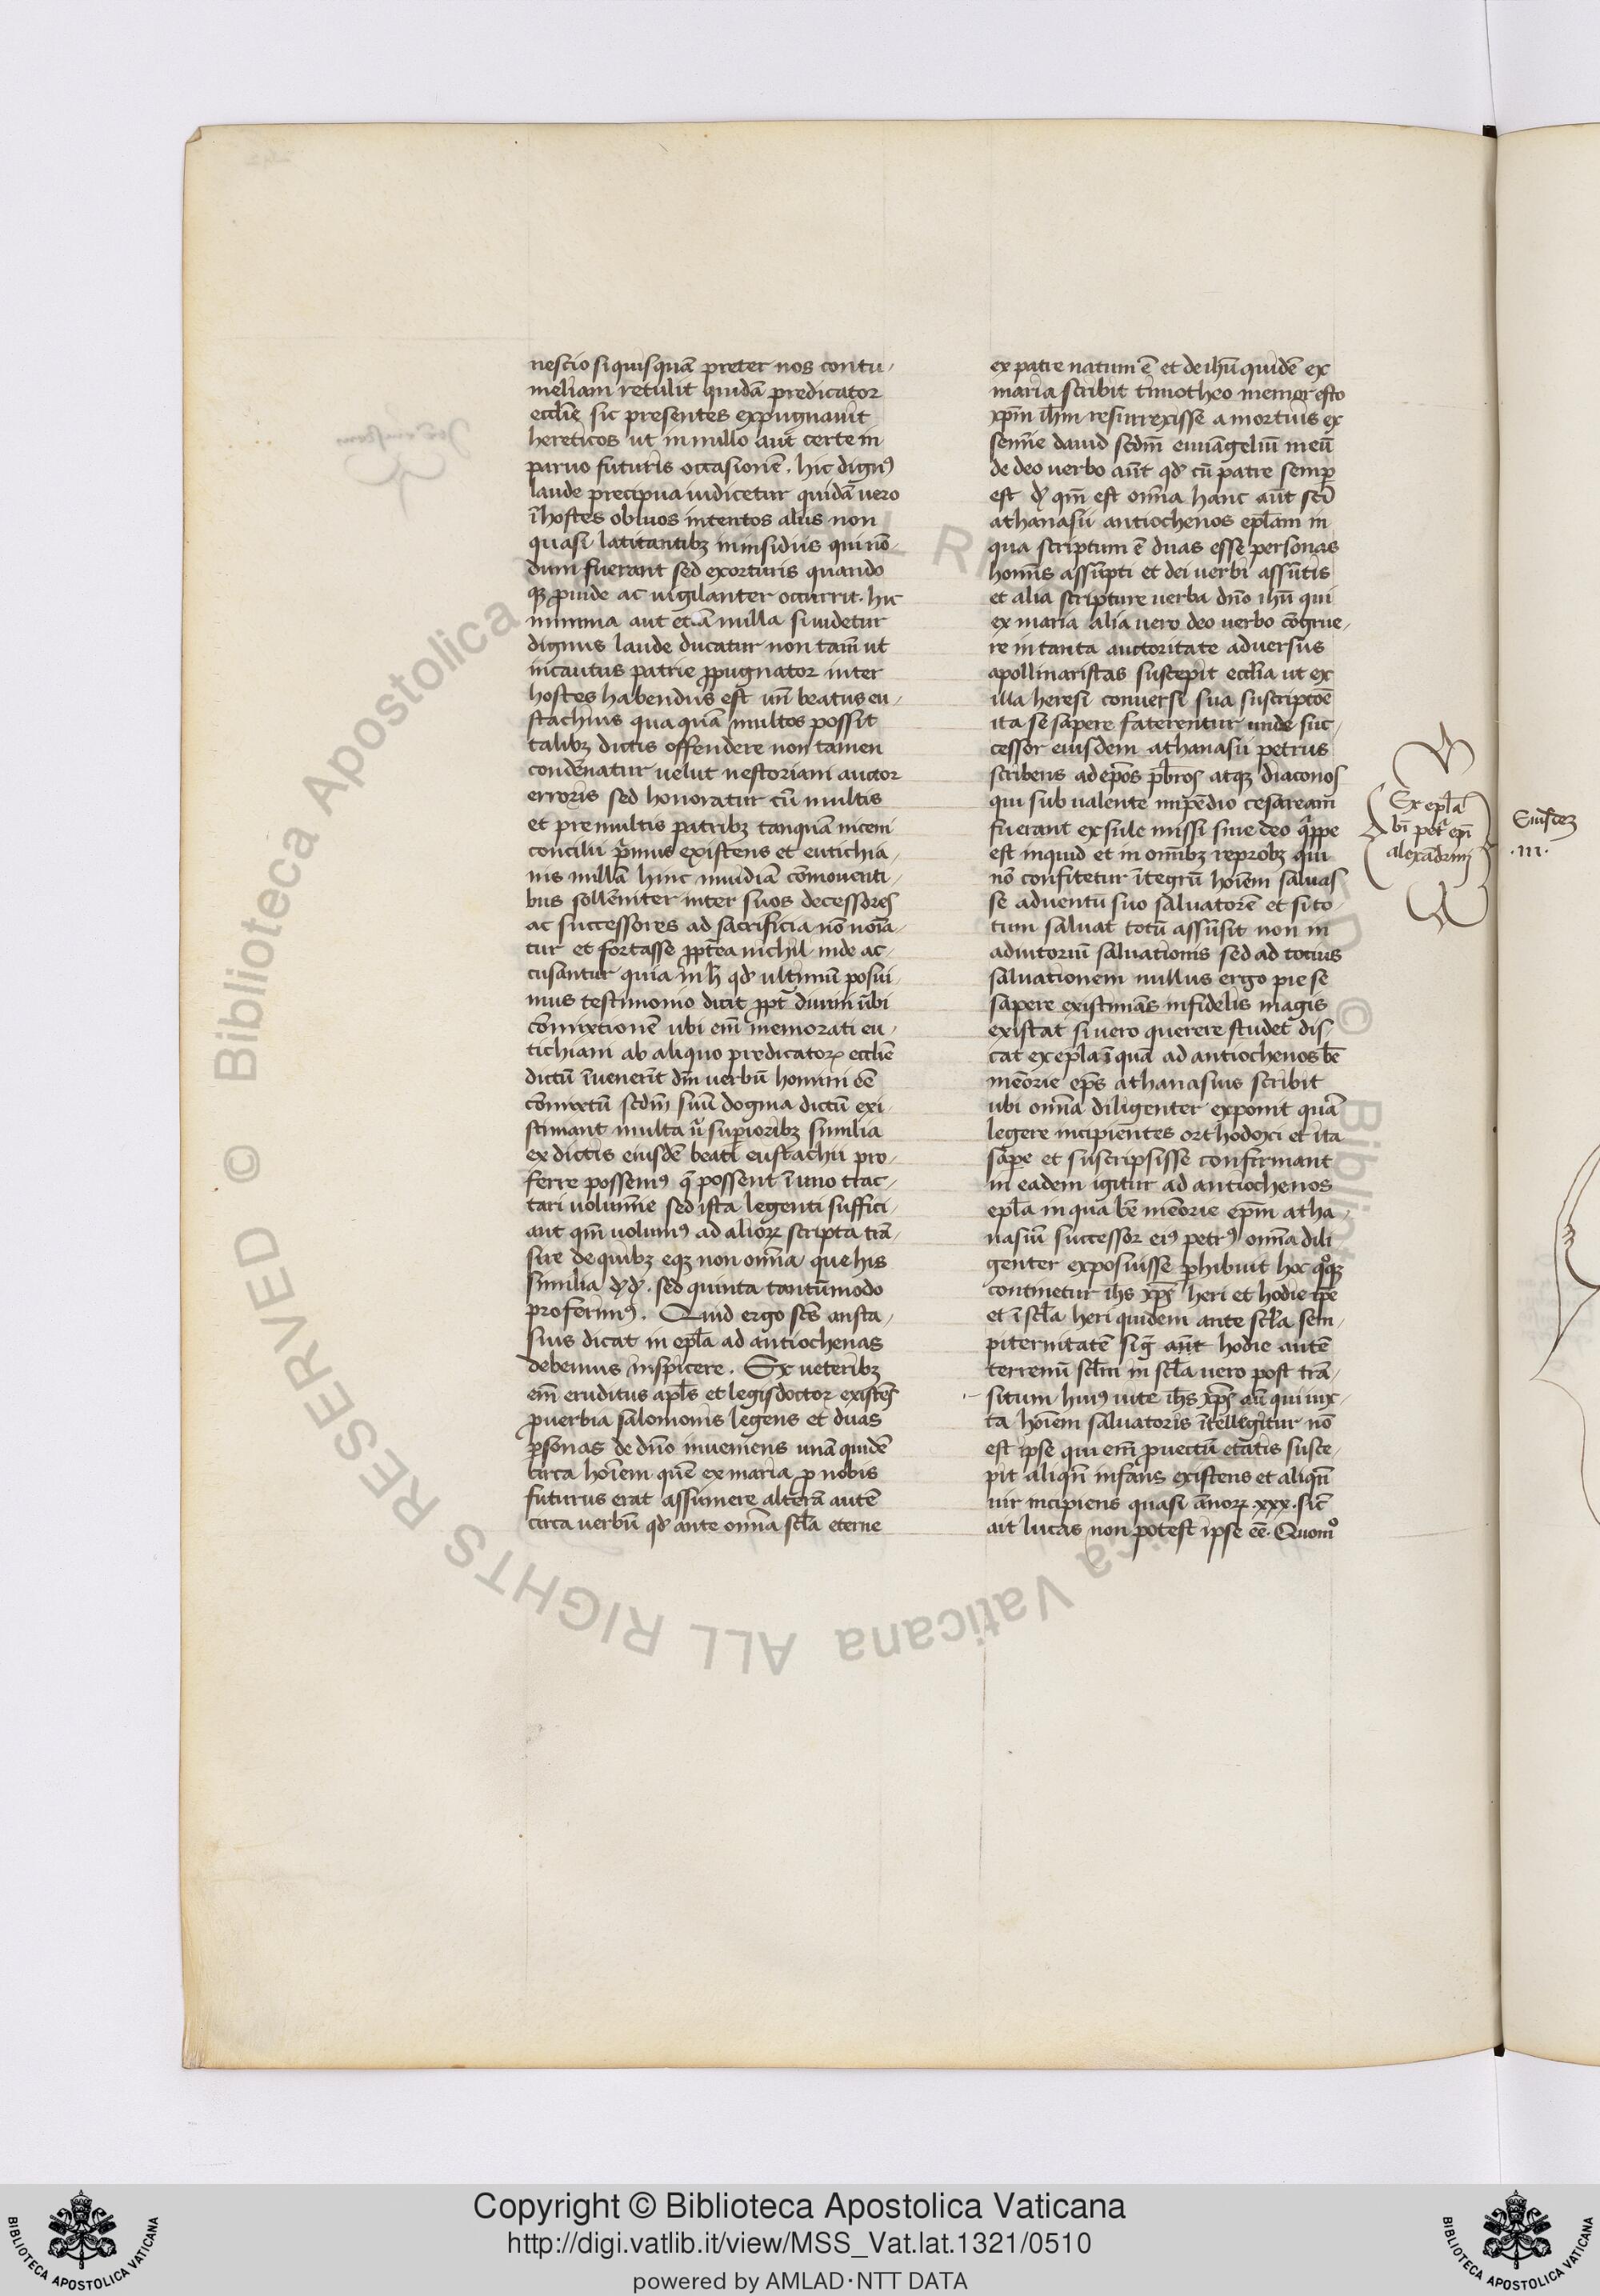 nescio si quisquā preter nos contu-
meliam retulit quidā predicator
ecclīe sic presentes expugnauit
hereticos ut in nullo aut certe in
paruo futuris occasionē. hic dignꝰ
laude precipua iudicetur quidā uero
ī hostes obuios intentos aliis non
quasi latitantibꝫ in insidiis qui nō-
dum fuerant sed exorturis quando
qꝫ ꝓuide ac uigilanter occurrit. hic
minima aut etiā nulla si uidetur
dignus laude ducatur non tam̄ ut
incautus patrie ꝓpugnator inter
hostes habendus est un̄ beatus eu-
stachius qua quā multos possit
talibꝫ dictis offendere non tamen
condēnatur uelut nestoriani auctor
erroris sed honoratur cū multis
et pre multis patribꝫ tanquā niceni
concilii pͥmus existens et eutichia-
nis nullā hinc inuidiā cōmouenti-
bus sollēniter inter suos decessores
ac successores ad sacrificia nō noīa-
tur et fortasse ꝓpterea nichil inde ac-
cusantur quia in h̄ qd ultimū posui-
mus testimonio dicit ꝓpt diuini ūbi
cōmixtionē ubi em̄ memorati eu-
tichiani ab aliquo predicatorꝫ ecclīe
dictū īuenerīt dm̄ uerbū homini eē
cōmixtū scdm̄ suū dogma dictū exi-
stimant multa ū suꝑioribꝫ similia
ex dictis eiusdē beati eustachii pro-
ferre possemꝰ q̄ possent ī uno trac-
tari uolumīe sed ista legenti suffici-
ant qm̄ uolumꝰ ad aliorꝫ scripta trā-
sire de quibꝫ eqꝫ non omīa que his
similia sed quinta tantūmodo
proferimꝰ. Quid ergo scs̄ ansta-
sius dicat in epl̄a ad antiochenas
debemus inspicere. Ex ueteribꝫ
em̄ eruditus apl̄s et legis doctor existēs
ꝓuerbia salomonis legens et duas
ꝑsonas de dn̄o inueniens unā quidē
circa hoīem quē ex maria ꝓ nobis
futurus erat assumere alterā autē
circa uerbū qd ante omīa scl̄a eterne
ex patre natum ē et de ihū quidē ex
maria scribit timotheo memor esto
xp̄m ih̄m resurrexisse a mortuis ex
semīe dauid scdm̄ euuāgeliū meū
de deo uerbo aūt qd cū patre semꝑ
est qm̄ est omīa hanc aūt scī
athanasii antiochenos epl̄am in
qua scriptum ē duas esse personas
homīs assūpti et dei uerbi assūētis
et alia scripture uerba dn̄o ihū qui
ex maria alia uero deo uerbo cōgrue-
re in tanta auctoritate aduersus
apollinaristas suscepit ecclīa ut ex
illa heresi conuersi sua suscriptōe
ita se sapere faterentur unde suc-
cessor eiusdem athanasii petrus
scribens ad epōs pb̄ros atqꝫ diaconos
qui sub ualente impēdio cesaream̄
fuerant exsule missi siue deo q̄ppe
est inquid et in omībꝫ reprobꝫ qui
nō confitetur ītegrū hoīem saluas
se aduentu suo saluatorē et si to-
tum saluat totū assūsit non in
adiutoriū saluationis sed ad totius
saluationem nullus ergo pie se
sapere existimās infidelis magis
existat si uero querere studet dis-
cat ex epl̄a ī quā ad antiochenos bē
memōrie ep̄s athanasius scribit
ubi omīa diligenter exponit quā
legere incipientes orthodoxi et ita
sape et suscripsisse confirmant
in eadem igitur ad antiochenos
epl̄a in qua bē memōrie ep̄m atha-
nasiū successor eiꝰ petrꝰ omīa dili
genter exposuisse ꝑhibuit hoc qoqꝫ
continetur ih̄s xp̄s heri et hodie ip̄e
et ī scl̄a heri quidem ante scl̄a sem-
piternitatē sig aūt hodie autē
terrenū scl̄m in scl̄a uero post trā-
situm huiꝰ uite ih̄s xp̄s aū qui iux-
ta hoīem saluatoris ītellegitur nō
est ipse qui em̄ ꝓuectū etatis susce-
pit aliqn̄ infans existens et aliqn̄
uir incipiens quasi ānorꝫ xxx. sic̄
ait lucas non potest ipse eē. Quomͦ
Ex epl̄a
bī petͥ ep̄i
alexādrinj
Eiusdeꝫ
.III.
Copyright © Biblioteca Apostolica Vaticana
http://digi.vatlib.it/view/MSS_Vat.lat.1321/0510
powered by AMLAD·NTT DATA
BIBLIOTECA APOSTOLICA VATICANA
BIBLIOTECA APOSTOLICA VATICANA
© Biblioteca Apostolica Vaticana ALL RIGHTS RESERVED